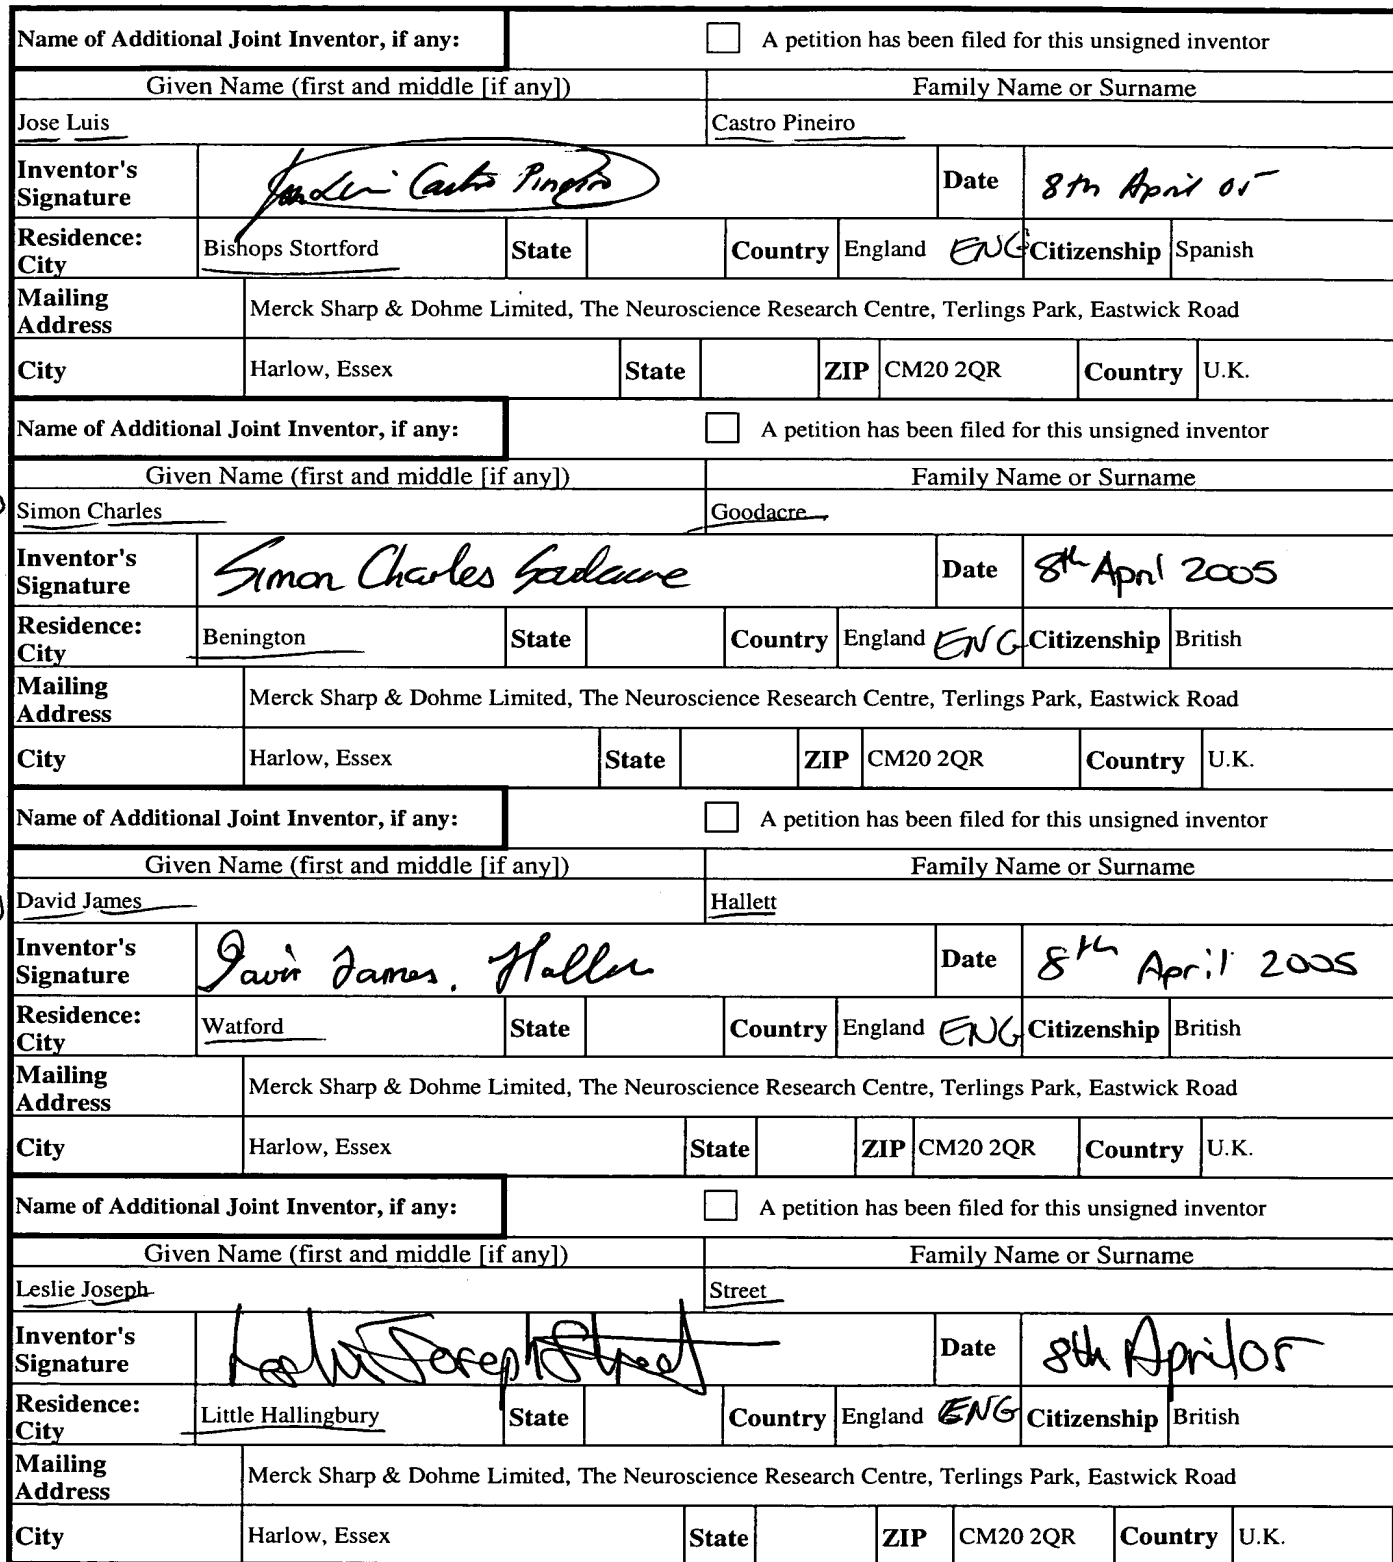 Name of Additional Joint Inventor, if any: A petition has been filed for this unsigned inventor
Given Name (first and middle [if any]) Family Name or Surname
Jose Luis Castro Pineiro
Inventor's Signature Castro Date 8th April 05
Residence: City Bishops Stortford State Country England ENG Citizenship Spanish
Mailing Address Merck Sharp & Dohme Limited, The Neuroscience Research Centre, Terlings Park, Eastwick Road
City Harlow, Essex State ZIP CM20 2QR Country U.K.
Name of Additional Joint Inventor, if any: A petition has been filed for this unsigned inventor
Given Name (first and middle [if any]) Family Name or Surname
Simon Charles Goodacre
Inventor's Signature Simon Charles Goodacre Date 8th April 2005
Residence: City Benington State Country England ENG Citizenship British
Mailing Address Merck Sharp & Dohme Limited, The Neuroscience Research Centre, Terlings Park, Eastwick Road
City Harlow, Essex State ZIP CM20 2QR Country U.K.
Name of Additional Joint Inventor, if any: A petition has been filed for this unsigned inventor
Given Name (first and middle [if any]) Family Name or Surname
David James Hallett
Inventor's Signature David James Hallett Date 8th April 2005
Residence: City Watford State Country England ENG Citizenship British
Mailing Address Merck Sharp & Dohme Limited, The Neuroscience Research Centre, Terlings Park, Eastwick Road
City Harlow, Essex State ZIP CM20 2QR Country U.K.
Name of Additional Joint Inventor, if any: A petition has been filed for this unsigned inventor
Given Name (first and middle [if any]) Family Name or Surname
Leslie Joseph Street
Inventor's Signature Leslie Joseph Street Date 8th April 05
Residence: City Little Hallingbury State Country England ENG Citizenship British
Mailing Address Merck Sharp & Dohme Limited, The Neuroscience Research Centre, Terlings Park, Eastwick Road
City Harlow, Essex State ZIP CM20 2QR Country U.K.